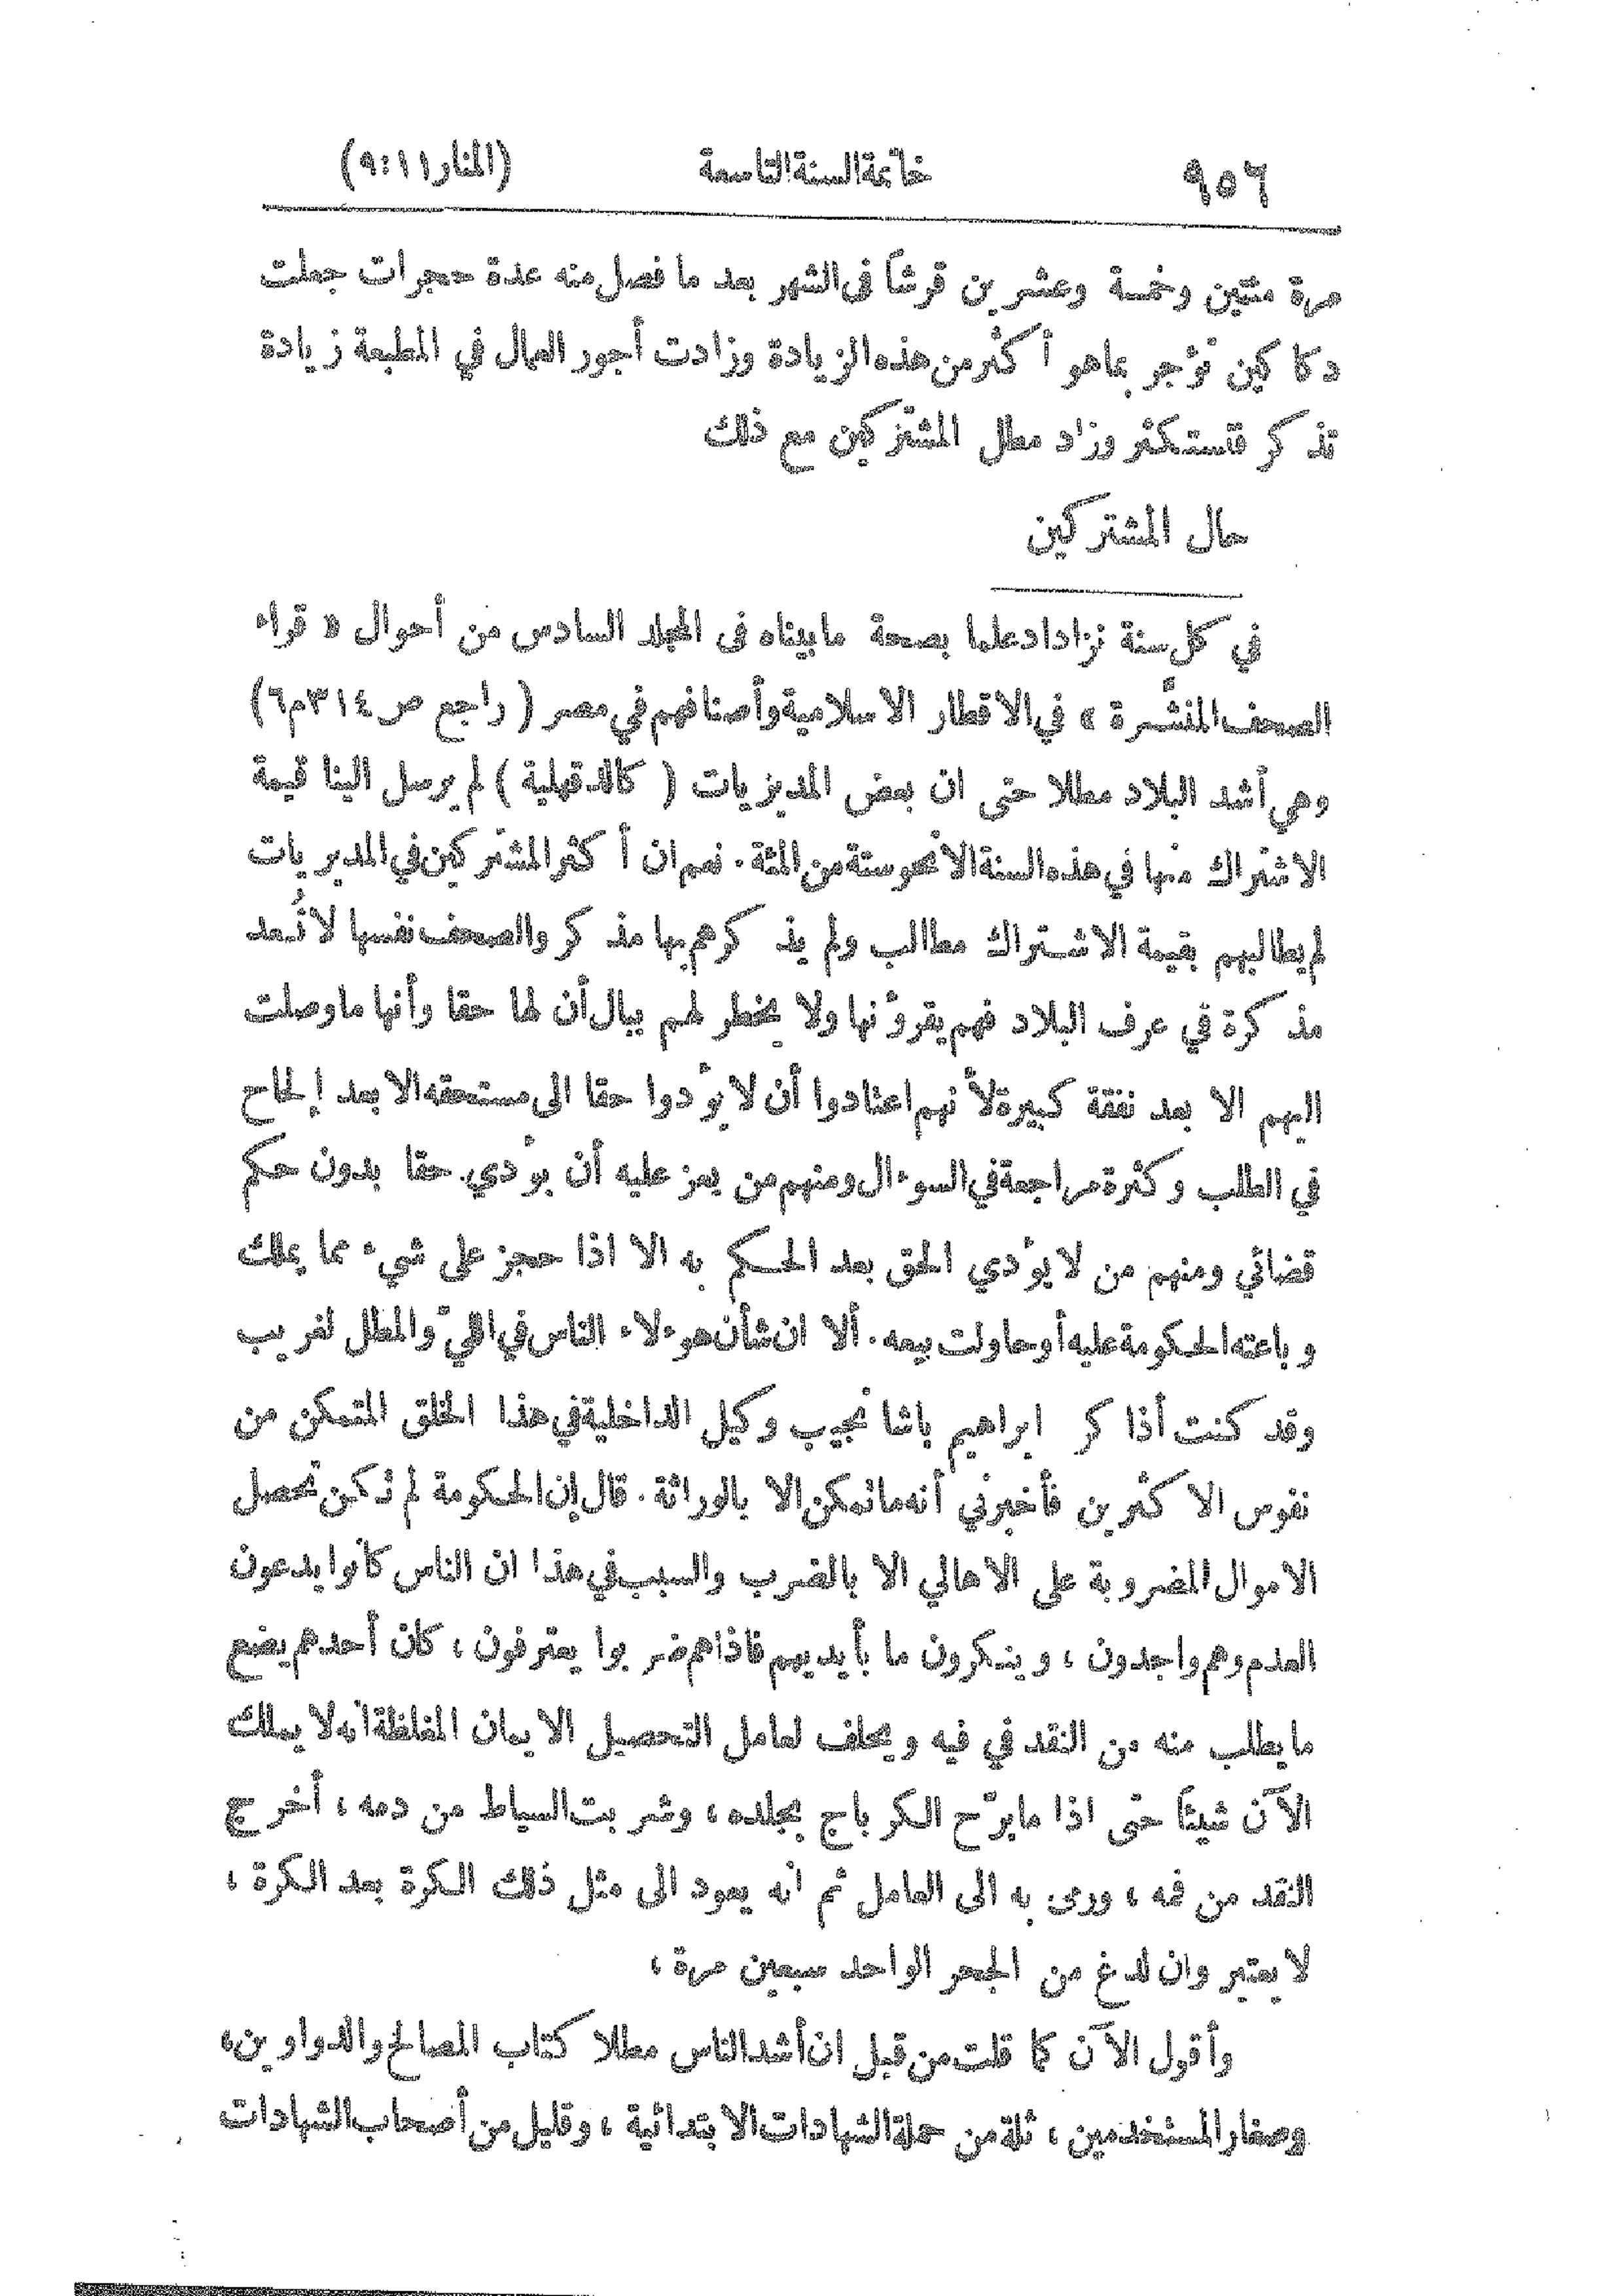 ٩٥٦ خاتمة السنة التاسعة (المنار١١:٩)
مرة مئتين وخمسة وعشرين قرشاً في الشهر بعد ما فصل منه عدة حجرات جعلت
دكاكين تؤجر بما هو أكثر من هذه الزيادة وزادت أجور العمال في المطبعة زيادة
تذكر فاستكثر وزاد مطل المشتركين مع ذلك
حال المشتركين
في كل سنة نزداد علما بصحة ما بيناه في المجلد السادس من أحوال « قراء
الصحف المنشَّرة » في الاقطار الاسلامية وأصنافهم في مصر ( راجع ص ٣١٤م٦)
وهي أشد البلاد مطلا حتى ان بعض المديريات ( كالدقهلية ) لم يرسل الينا قيمة
الاشتراك منها في هذه السنة الا نحو ستة من المئة . نعم ان أكثر المشتركين في المديريات
لم يطالبهم بقيمة الاشتراك مطالب ولم يذكرهم بها مذكر والصحف نفسها لا تُعد
مذكرة في عرف البلاد فهم يقرؤنها ولا يخطر لهم ببال أن لها حقا وأنها ما وصلت
اليهم الا بعد نفقة كبيرة لأنهم اعتادوا أن لا يؤدوا حقا الى مستحقه الا بعد إلحاح
في الطلب وكثرة مراجعة في السوءال ومنهم من يعز عليه أن يؤدي حقا بدون حكم
قضائي ومنهم من لا يؤدي الحق بعد الحكم به الا اذا حجز على شيء مما يملك
وباعته الحكومة عليه أو حاولت بيعه . ألا ان شأن هوءلاء الناس في الليّ والمطل لغريب
وقد كنت أذاكر ابراهيم باشا نجيب وكيل الداخلية في هذا الخلق المتمكن من
نفوس الاكثرين فأخبرني أنه ما تمكن الا بالوراثة . قال إن الحكومة لم تكن تحصل
الاموال المضروبة على الاهالي الا بالضرب والسبب في هذا ان الناس كانوا يدعون
العدم وهم واجدون ، وينكرون ما بأيديهم فاذاهم ضربوا يعترفون ، كان أحدهم يضع
ما يطلب منه من النقد في فيه ويحلف لعامل التحصيل الايمان المغلظة انه لا يملك
الآن شيئاً حتى اذا ما برّح الكرباج بجلده ، وشربت السياط من دمه ، أخرج
النقد من فمه ، ورمى به الى العامل ثم انه يعود الى مثل ذلك الكرة بعد الكرة ،
لا يعتبر وان لدغ من الجحر الواحد سبعين مرة ،
وأقول الآن كما قلت من قبل ان أشد الناس مطلا كتاب المصالح والدواوين ،
وصغار المستخدمين ، ثلة من حملة الشهادات الابتدائية ، وقليل من أصحاب الشهادات